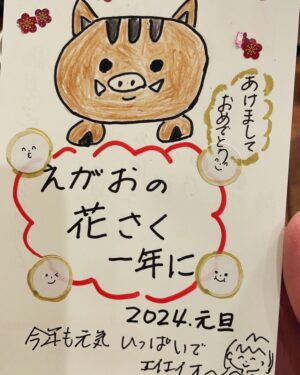 あけまして
おめでとう
えがおの
花さく
一年に
2024.元旦
今年も元気 いっぱいで
エイエイオー